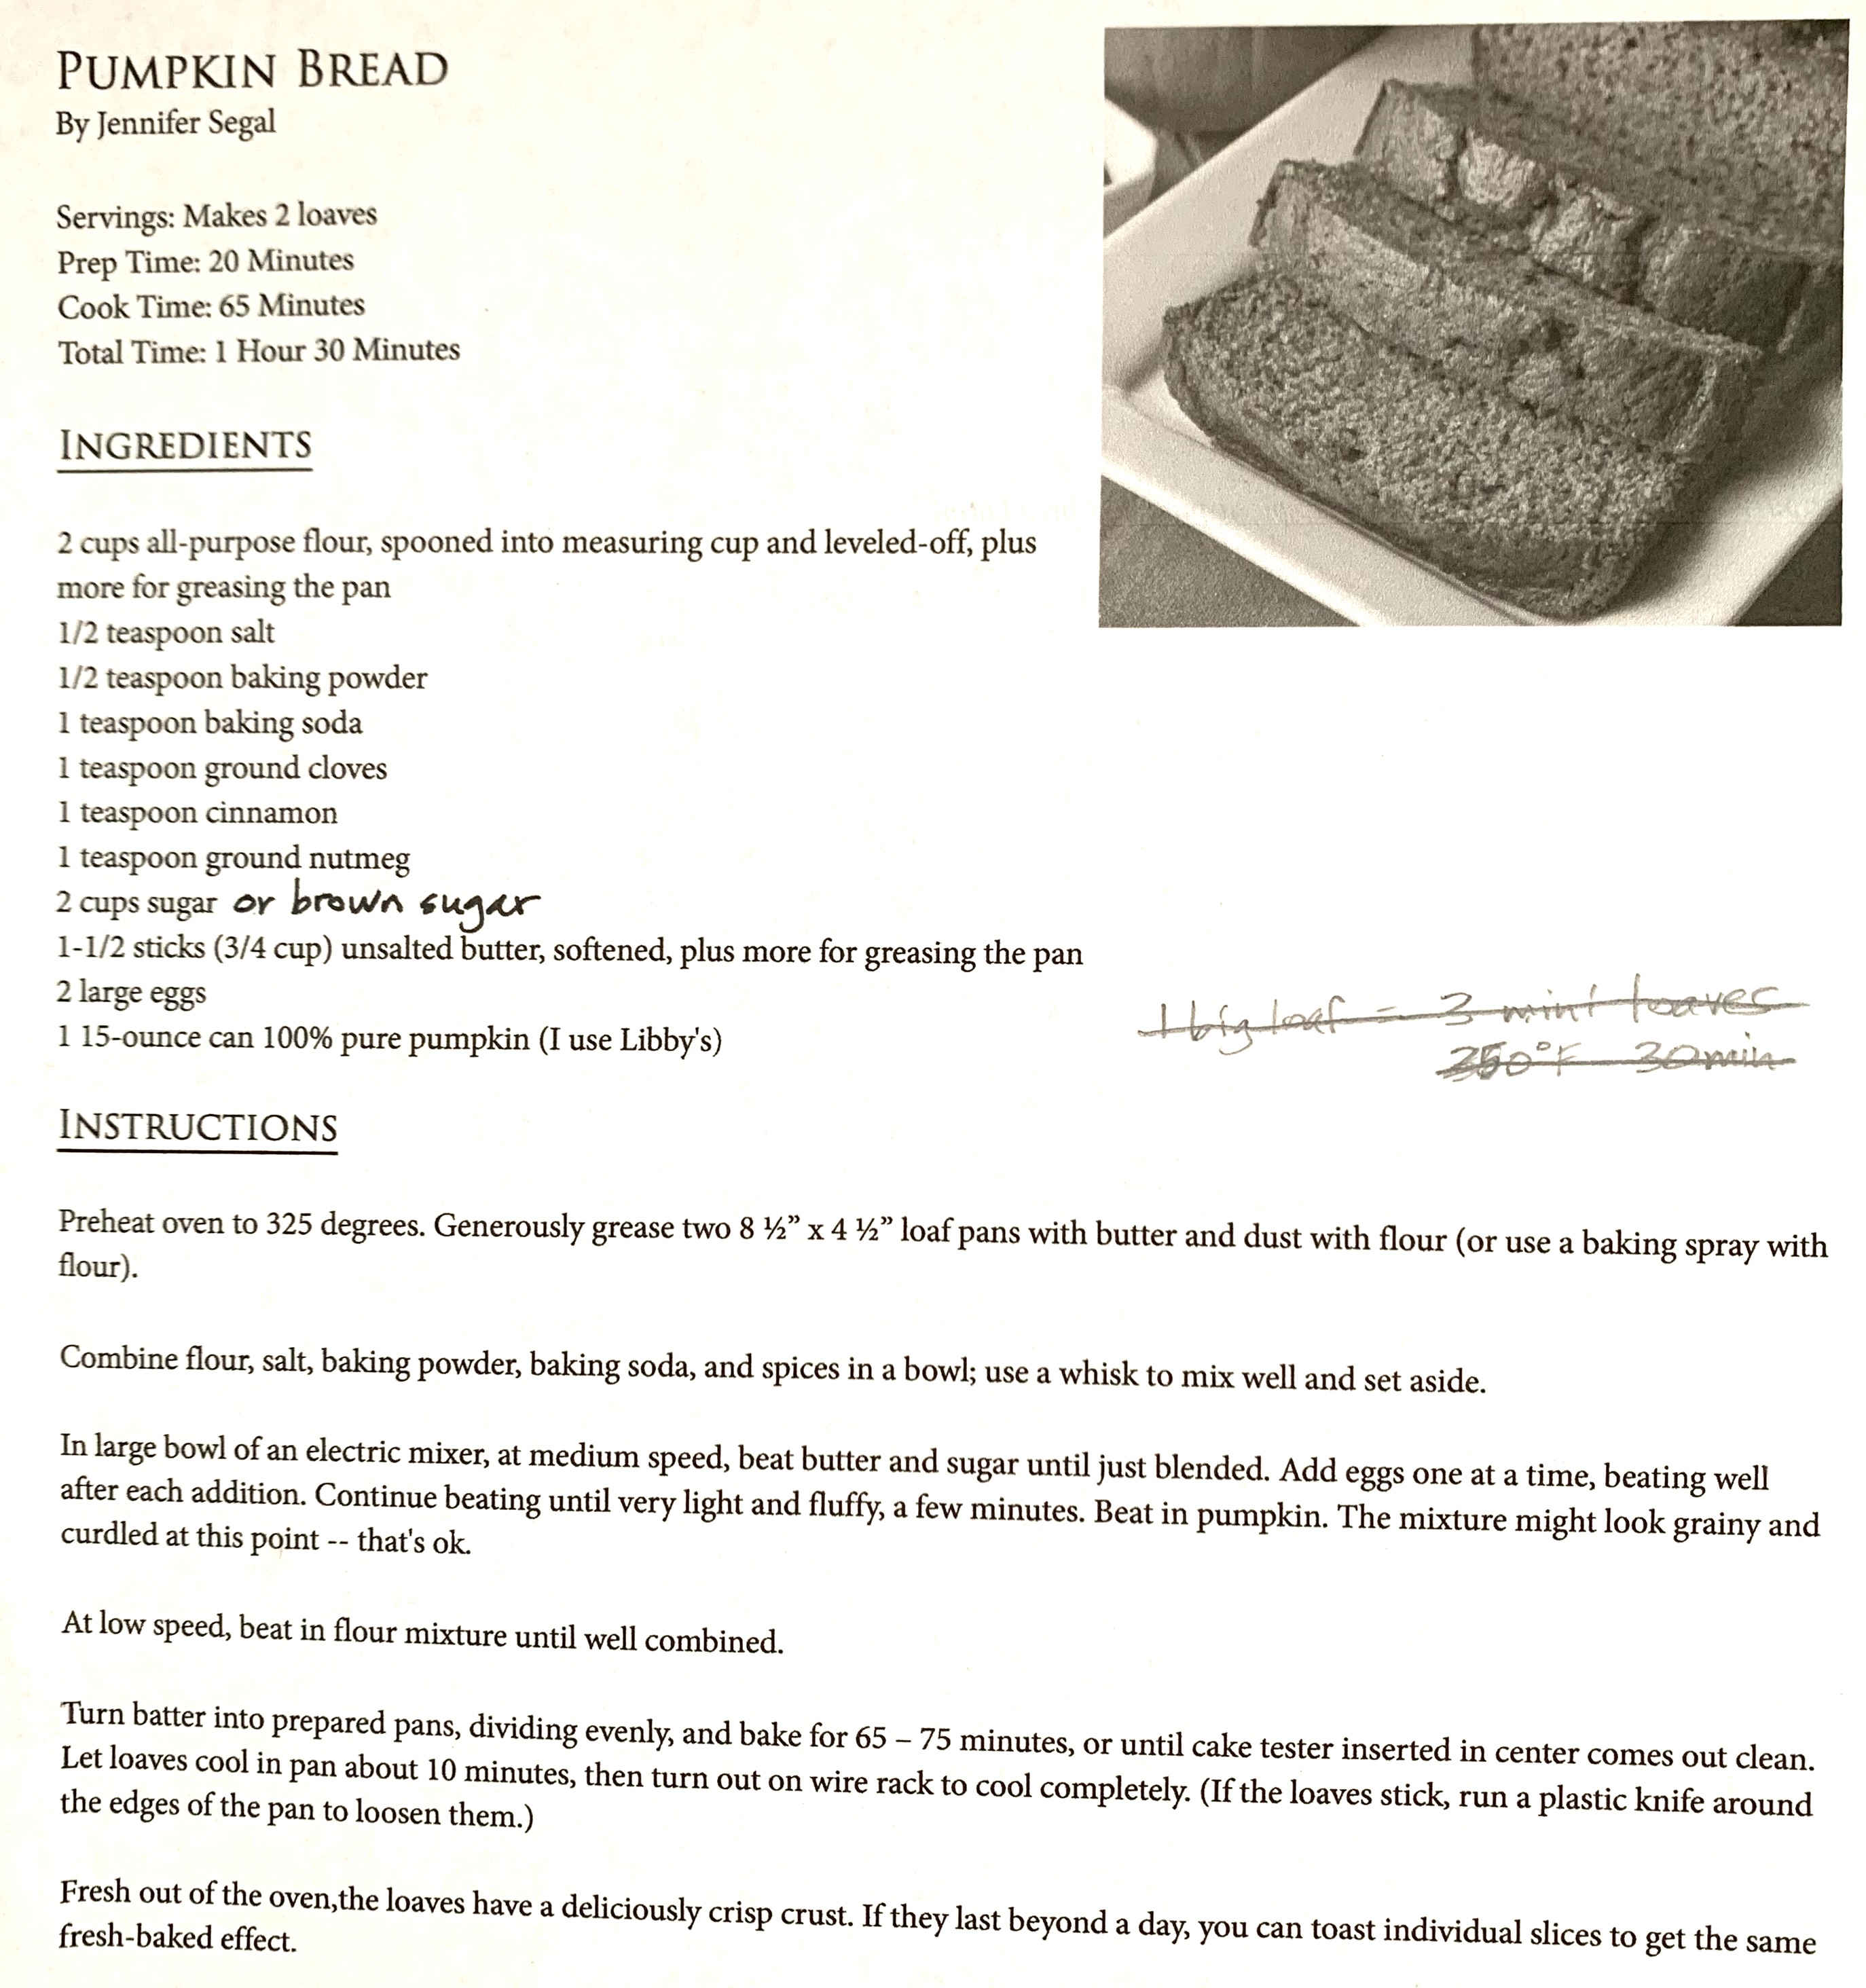 PUMPKIN BREAD
By Jennifer Segal
Servings: Makes 2 loaves
Prep Time: 20 Minutes
Cook Time: 65 Minutes
Total Time: 1 Hour 30 Minutes
INGREDIENTS
2 cups all-purpose flour, spooned into measuring cup and leveled-off, plus
more for greasing the pan
1/2 teaspoon salt
1/2 teaspoon baking powder
1 teaspoon baking soda
1 teaspoon ground cloves
1 teaspoon cinnamon
1 teaspoon ground nutmeg
2 cups sugar or brown sugar
1-1/2 sticks (3/4 cup) unsalted butter, softened, plus more for greasing the pan
2 large eggs
1 15-ounce can 100% pure pumpkin (I use Libby's)
1 big loaf = 3 mini loaves
350°F 30min
INSTRUCTIONS
Preheat oven to 325 degrees. Generously grease two 8 ½” x 4 ½” loaf pans with butter and dust with flour (or use a baking spray with
flour).
Combine flour, salt, baking powder, baking soda, and spices in a bowl; use a whisk to mix well and set aside.
In large bowl of an electric mixer, at medium speed, beat butter and sugar until just blended. Add eggs one at a time, beating well
after each addition. Continue beating until very light and fluffy, a few minutes. Beat in pumpkin. The mixture might look grainy and
curdled at this point -- that's ok.
At low speed, beat in flour mixture until well combined.
Turn batter into prepared pans, dividing evenly, and bake for 65 – 75 minutes, or until cake tester inserted in center comes out clean.
Let loaves cool in pan about 10 minutes, then turn out on wire rack to cool completely. (If the loaves stick, run a plastic knife around
the edges of the pan to loosen them.)
Fresh out of the oven,the loaves have a deliciously crisp crust. If they last beyond a day, you can toast individual slices to get the same
fresh-baked effect.